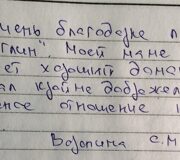 мень благодарна п
глин". Моей маме
ет хороший дона
ал крайне доброжел
ное отношение
Возопина С.М.